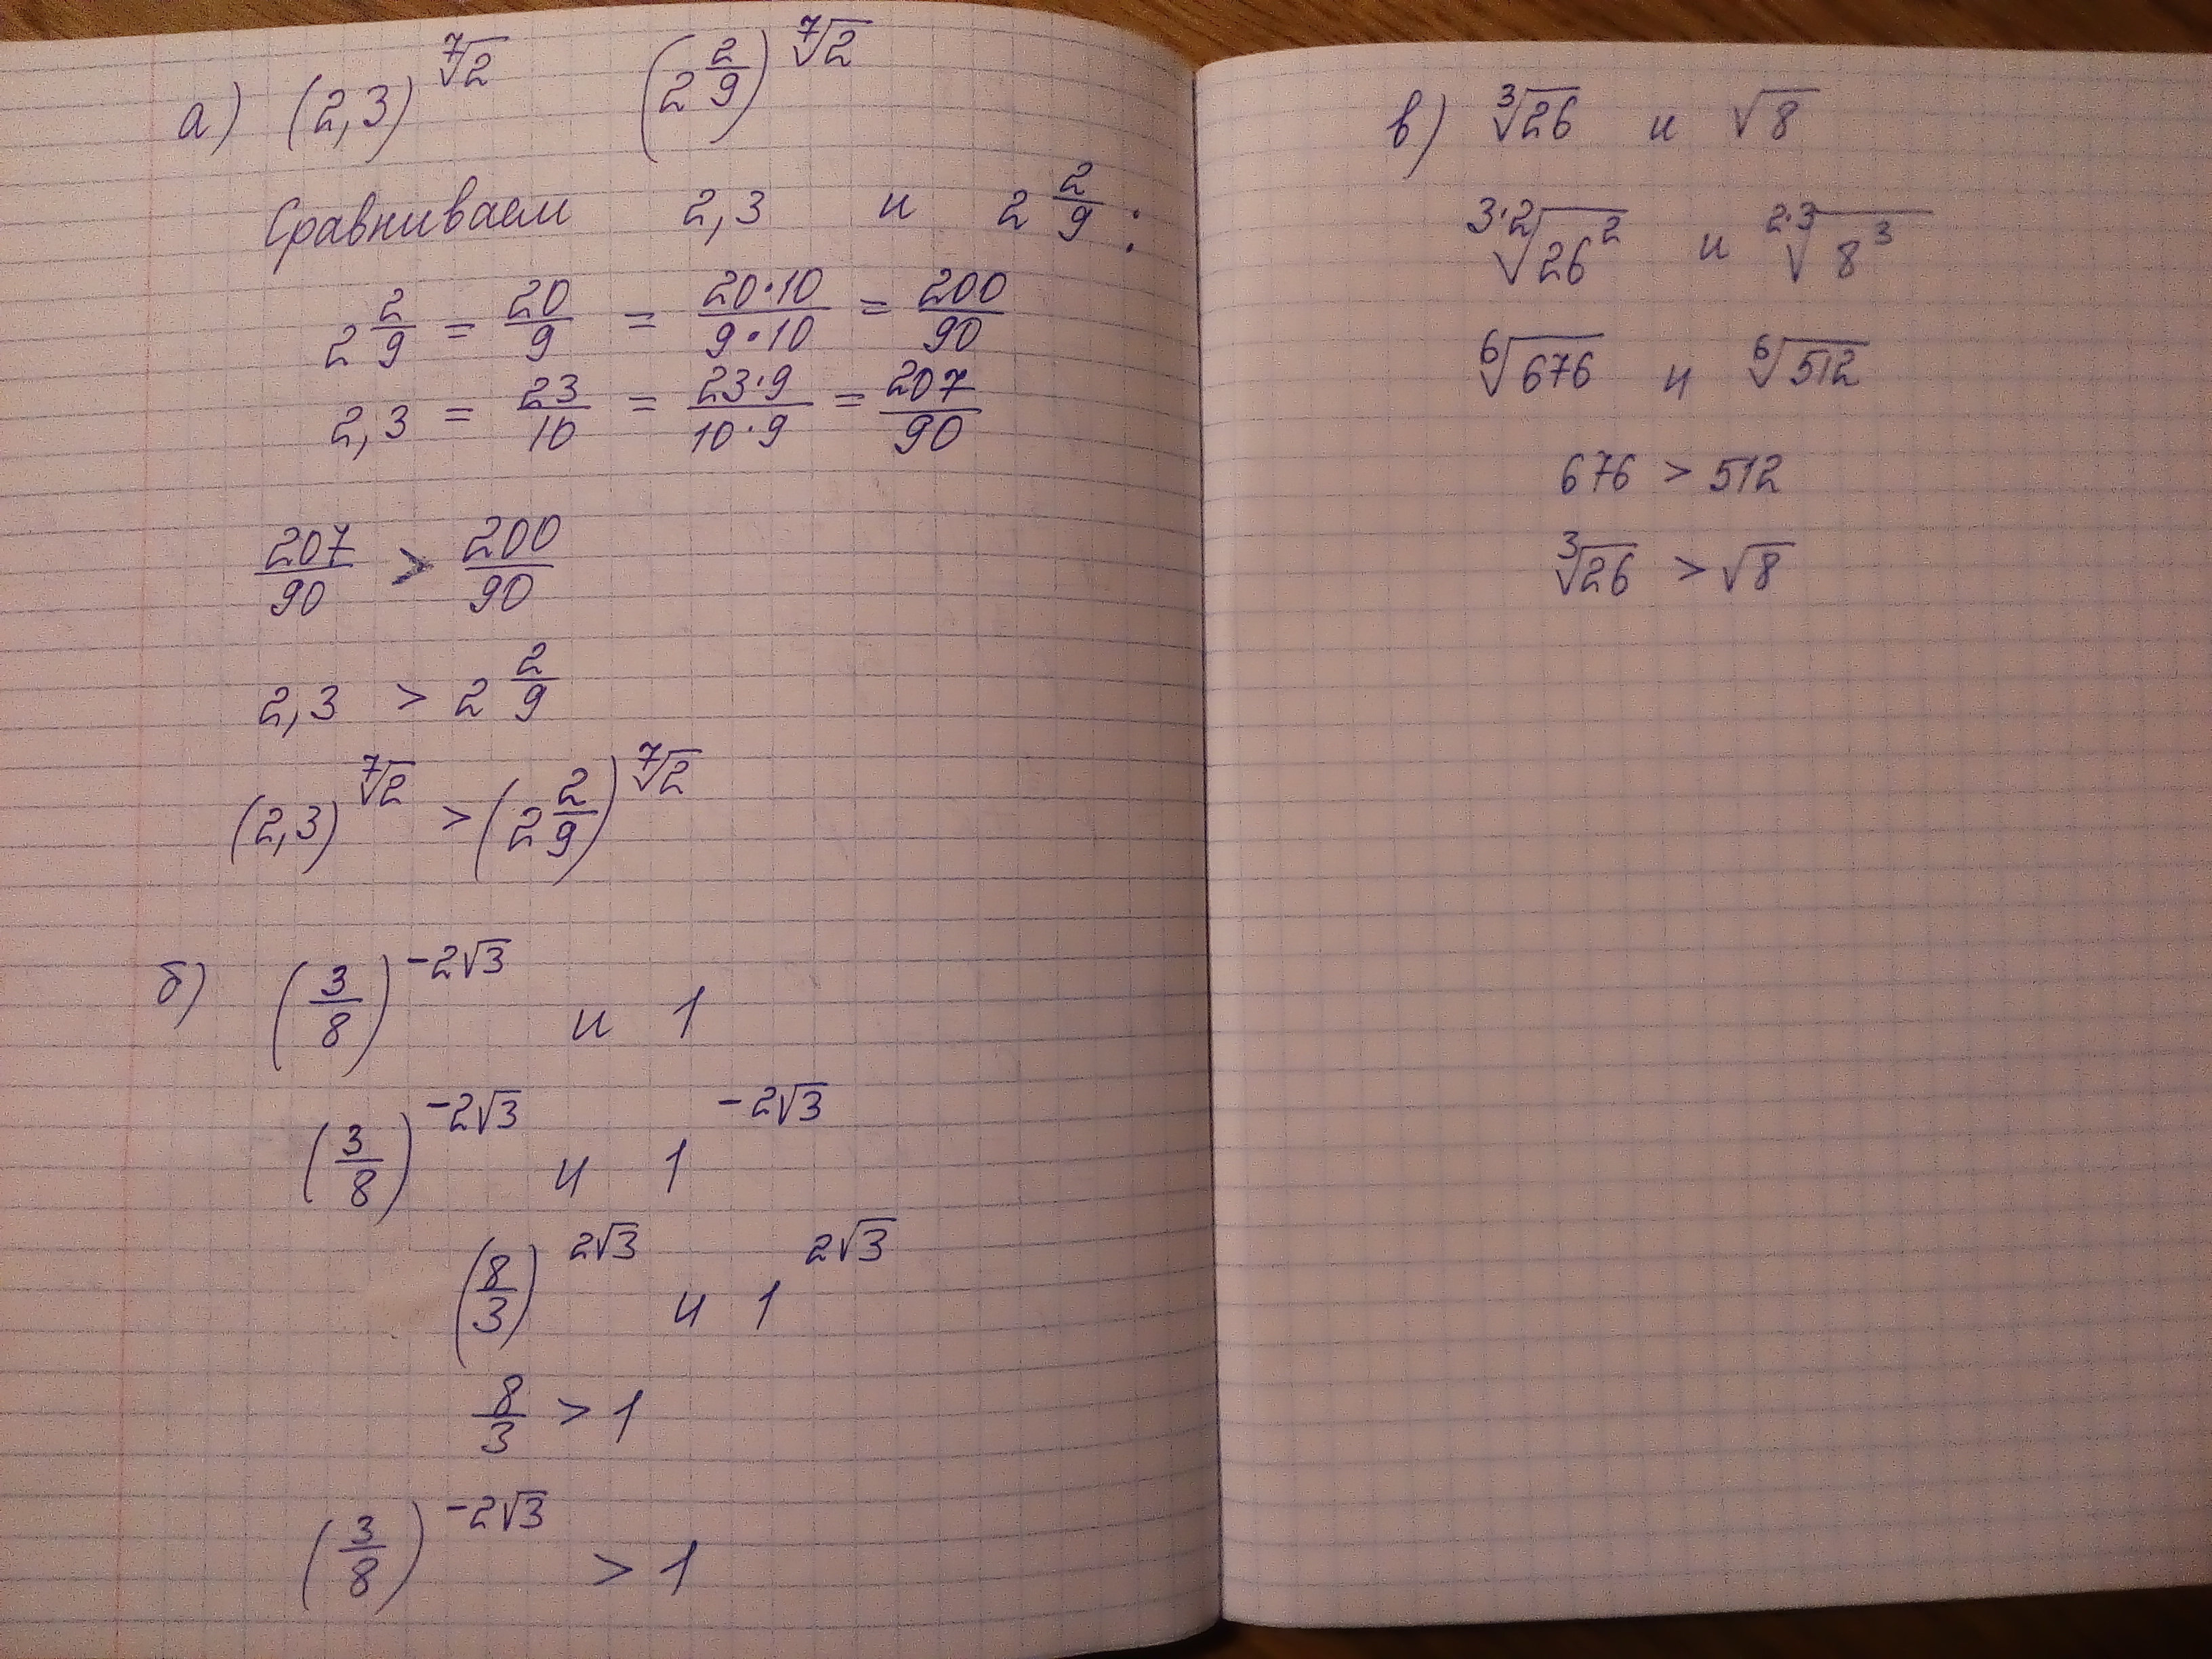 а) (2,3)^⁷√2 (2 2/9)^⁷√2
Сравниваем 2,3 и 2 2/9 :
2 2/9 = 20/9 = 20·10/9·10 = 200/90
2,3 = 23/10 = 23·9/10·9 = 207/90
207/90 > 200/90
2,3 > 2 2/9
(2,3)^⁷√2 > (2 2/9)^⁷√2
б) (3/8)^-2√3 и 1
(3/8)^-2√3 и 1^-2√3
(8/3)^2√3 и 1^2√3
8/3 > 1
(3/8)^-2√3 > 1
в) ³√26 и √8
³·²√26² и ²·³√8³
⁶√676 и ⁶√512
676 > 512
³√26 > √8